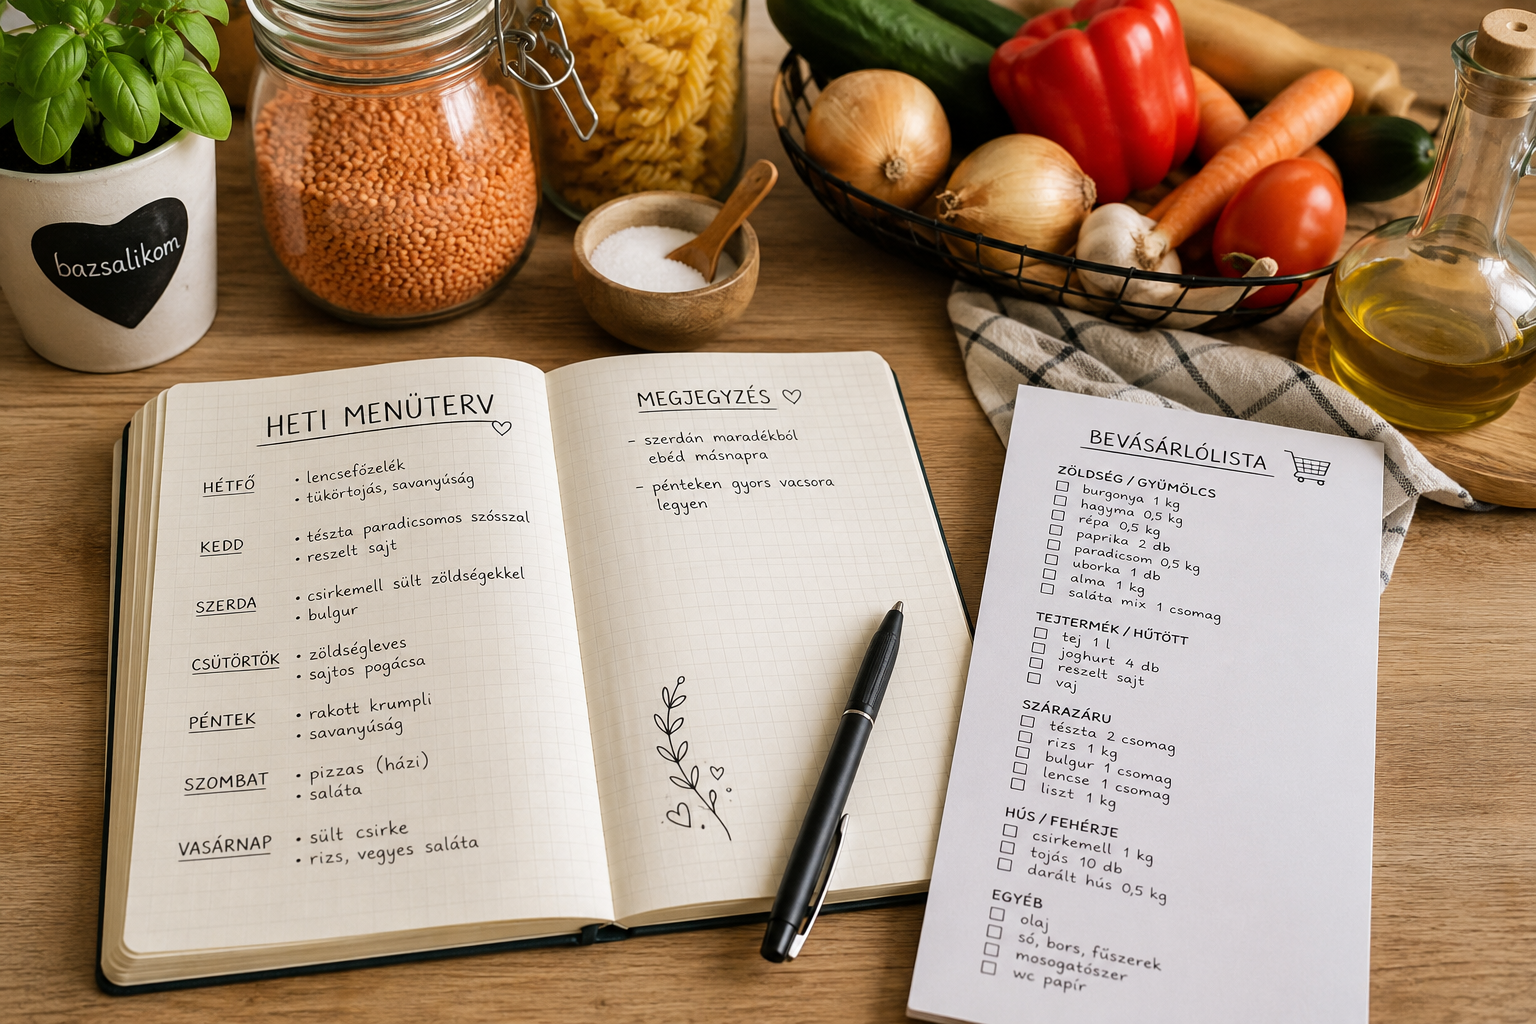 bazsalikom
HETI MENÜTERV
HÉTFŐ
• lencsefőzelék
• tükörtojás, savanyúság
KEDD
• tészta paradicsomos szósszal
• reszelt sajt
SZERDA
• csirkemell sült zöldségekkel
• bulgur
CSÜTÖRTÖK
• zöldségleves
• sajtos pogácsa
PÉNTEK
• rakott krumpli
• savanyúság
SZOMBAT
• pizzas (házi)
• saláta
VASÁRNAP
• sült csirke
• rizs, vegyes saláta
MEGJEGYZÉS
- szerdán maradékból
ebéd másnapra
- pénteken gyors vacsora
legyen
BEVÁSÁRLÓLISTA
ZÖLDSÉG / GYÜMÖLCS
burgonya 1 kg
hagyma 0,5 kg
répa 0,5 kg
paprika 2 db
paradicsom 0,5 kg
uborka 1 db
alma 1 kg
saláta mix 1 csomag
TEJTERMÉK / HŰTÖTT
tej 1 l
joghurt 4 db
reszelt sajt
vaj
SZÁRAZÁRU
tészta 2 csomag
rizs 1 kg
bulgur 1 csomag
lencse 1 csomag
liszt 1 kg
HÚS / FEHÉRJE
csirkemell 1 kg
tojás 10 db
darált hús 0,5 kg
EGYÉB
olaj
só, bors, fűszerek
mosogatószer
wc papír